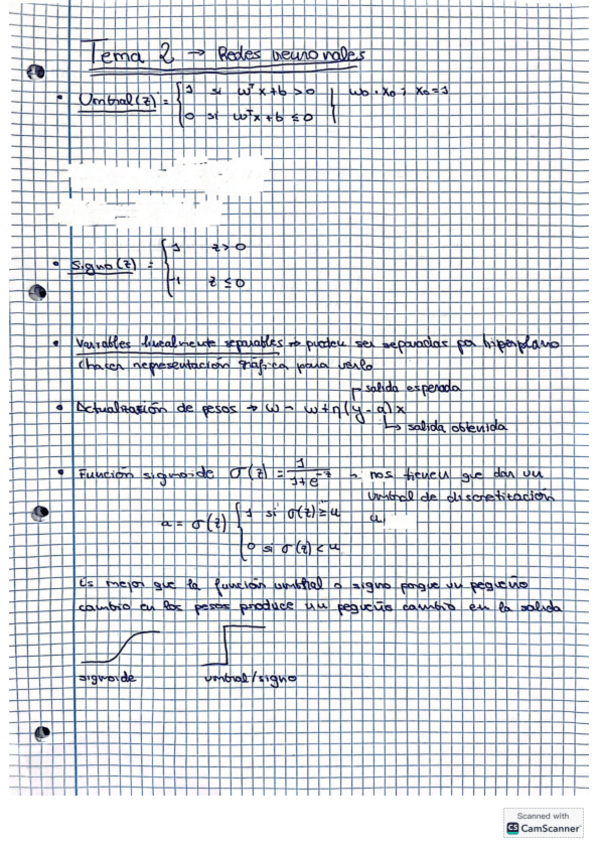 Tema 2 → Redes neuronales
• Umbral(z) = { 1 si wᵀx+b > 0 | w0 · x0 ; x0 = 1
0 si wᵀx+b ≤ 0
• Signo(z) = { 1 z > 0
-1 z ≤ 0
• Variables linealmente separables → pueden ser separadas por hiperplano
(hacer representación gráfica para verlo
→ salida esperada
• Actualización de pesos → w ← w + η(y - a)x
↳ salida obtenida
• Función sigmoide σ(z) = 1/(1+e^-z) → nos tienen que dar un
umbral de discretización
u
a = σ(z) { 1 si σ(z) ≥ u
0 si σ(z) < u
Es mejor que la función umbral o signo porque un pequeño
cambio en los pesos produce un pequeño cambio en la salida
sigmoide umbral/signo
Scanned with
CS CamScanner